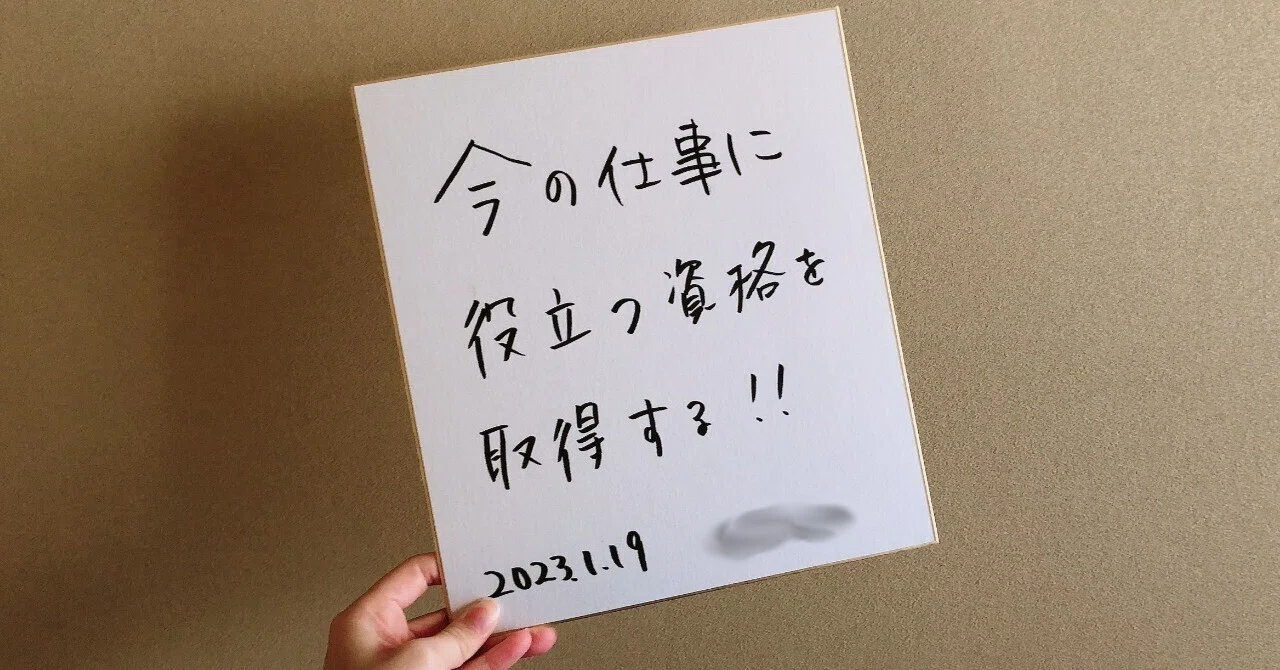 今の仕事に
役立つ資格を
取得する!!
2023.1.19